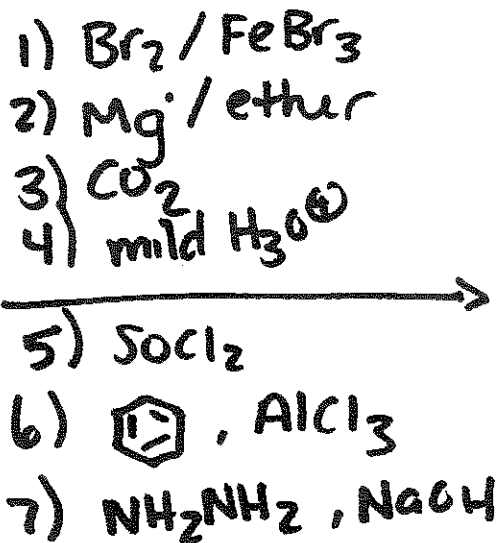 1) Br₂ / FeBr₃
2) Mg° / ether
3) CO₂
4) mild H₃O⊕
5) SOCl₂
6) , AlCl₃
7) NH₂NH₂ , NaOH